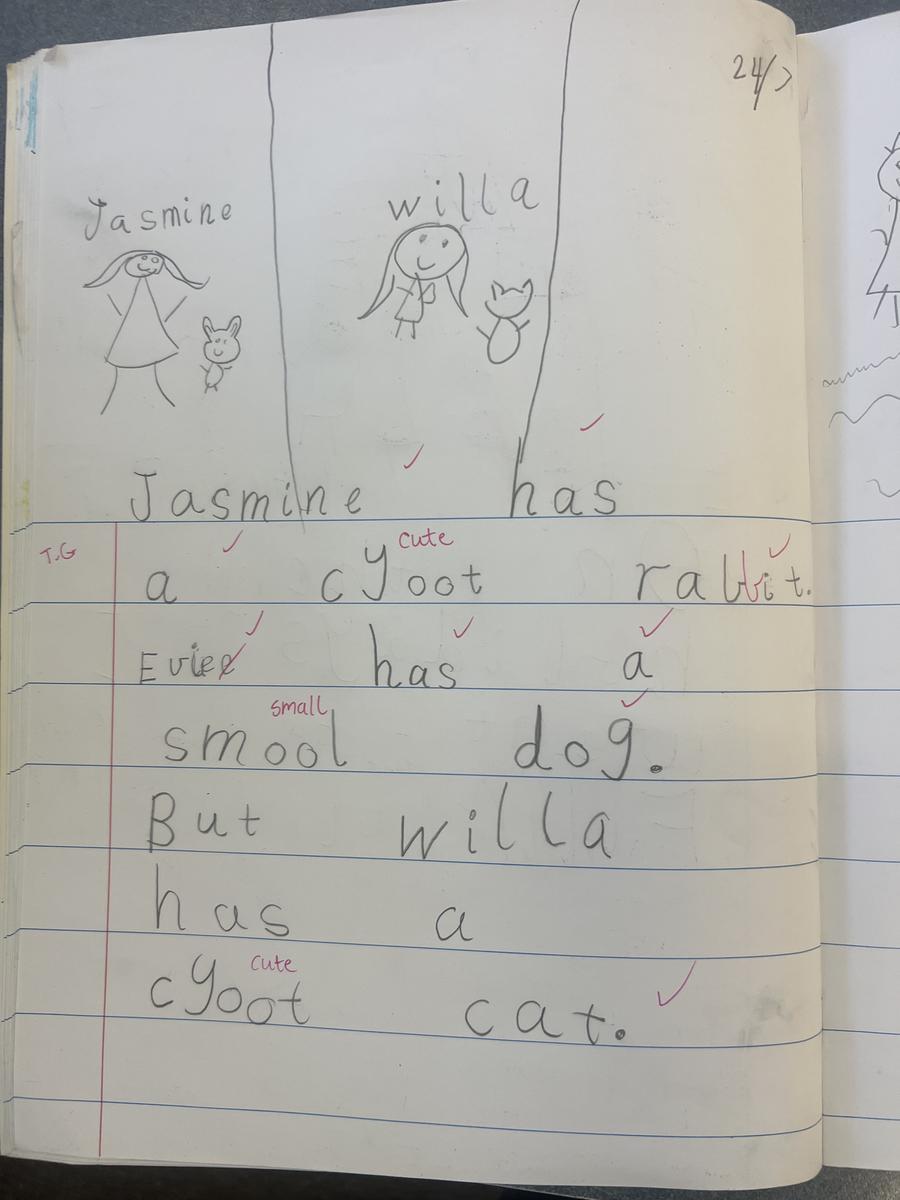 24/7
Jasmine willa
Jasmine has
T.G
cute
a cyoot rabbit.
Evie has a
small
smool dog.
But willa
has a
cute
cyoot cat.